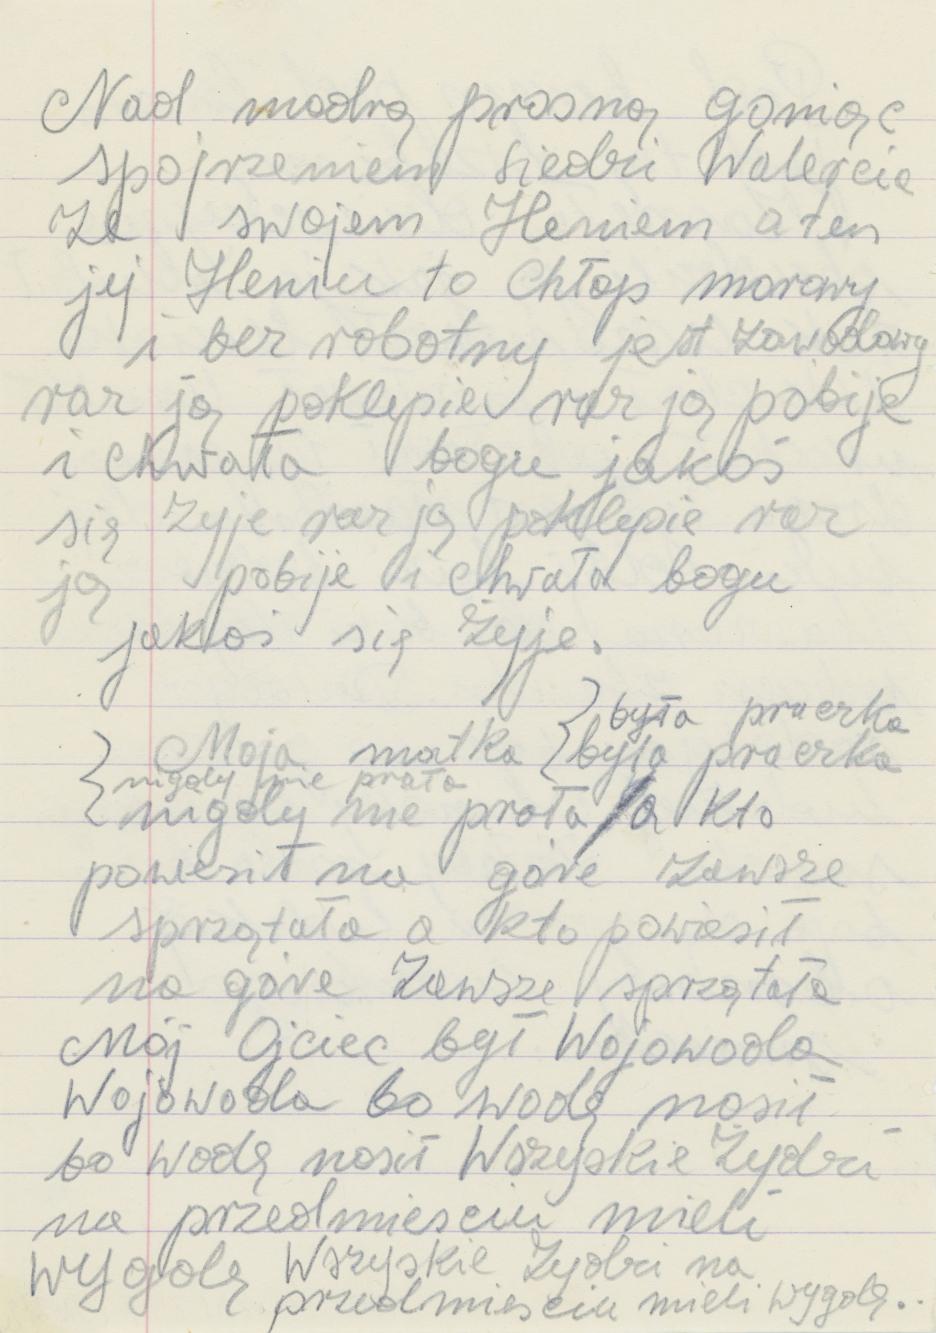 Nad modrą prosną goniąc
spojrzeniem siedzi Walercia
Ze swojem Heniem a ten
jej Heniu to Chłop morowy
i bez robotny jest zawodowy
raz ją poklepie raz ją pobije
i chwała bogu jakoś
się żyje raz ją poklepie raz
ją pobije i chwała bogu
jakoś się żyje.
} była praczka
} Moja matka } była praczka
nigdy nie prała
nigdy nie prała a kto
powiesił na góre zawsze
sprzątała a kto powiesił
na góre zawsze sprzątała
Mój Ojciec był Wojowoda
Wojowoda bo wodę nosił
bo wodę nosił Wszyskie Żydzi
na przedmiesciu mieli
wygodę Wszyskie Żydzi na
przedmiesciu mieli wygodę..